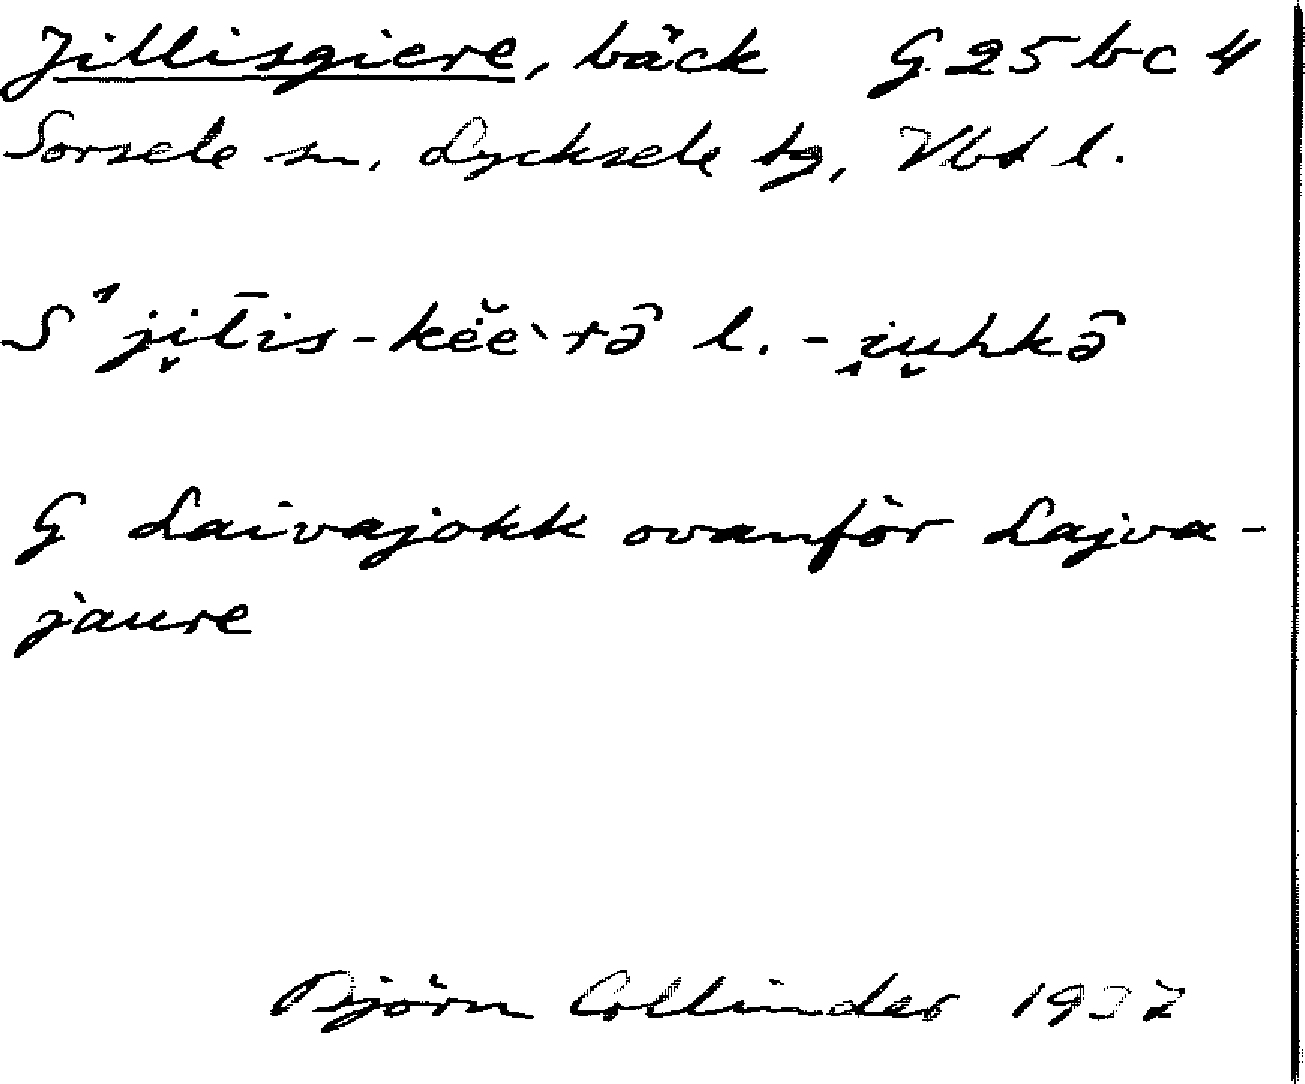 Jillisgiere, bäck G. 25 bc 4
Sorsele sn, Lycksele tg, Vbt l.
S ˊji̬l̄is-kĕ̤e`rə̂ l. -i̭u̬hkə̂
G Laivajokk ovanför Lajva-
jaure
Björn Collinder 1937